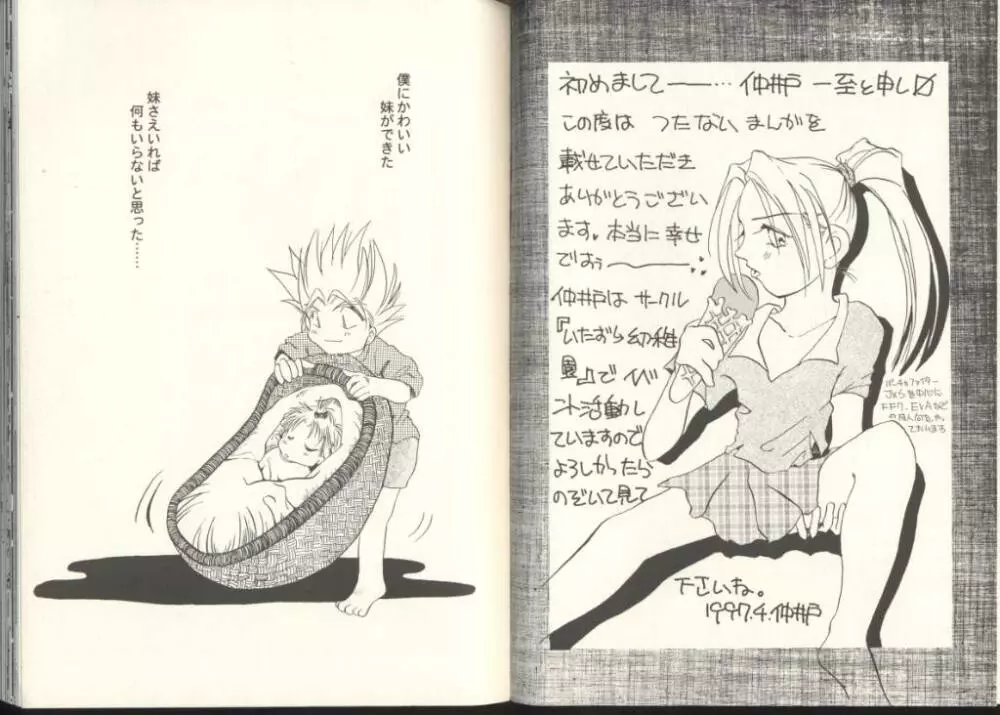 僕にかわいい
妹ができた
妹さえいれば
何もいらないと思った……
初めまして――…仲井戸 一至と申し〼
この度は つたない、まんがを
載せていただき
ありがとうござい
ます。本当に幸せ
でほぅ―――
仲井戸は サークル
『いたずら幼稚
園』で イベ
ント活動し
ていますので
よろしかったら
のぞいて見て
下さいね。
1997.4.仲井戸
バーチャファイター
FF7、EVAなど